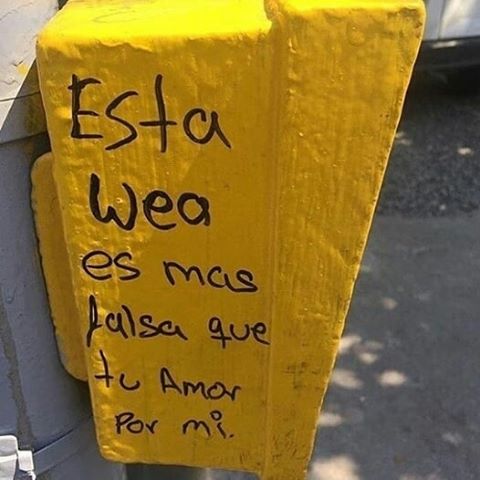 Esta
wea
es mas
falsa que
tu Amor
Por mi.